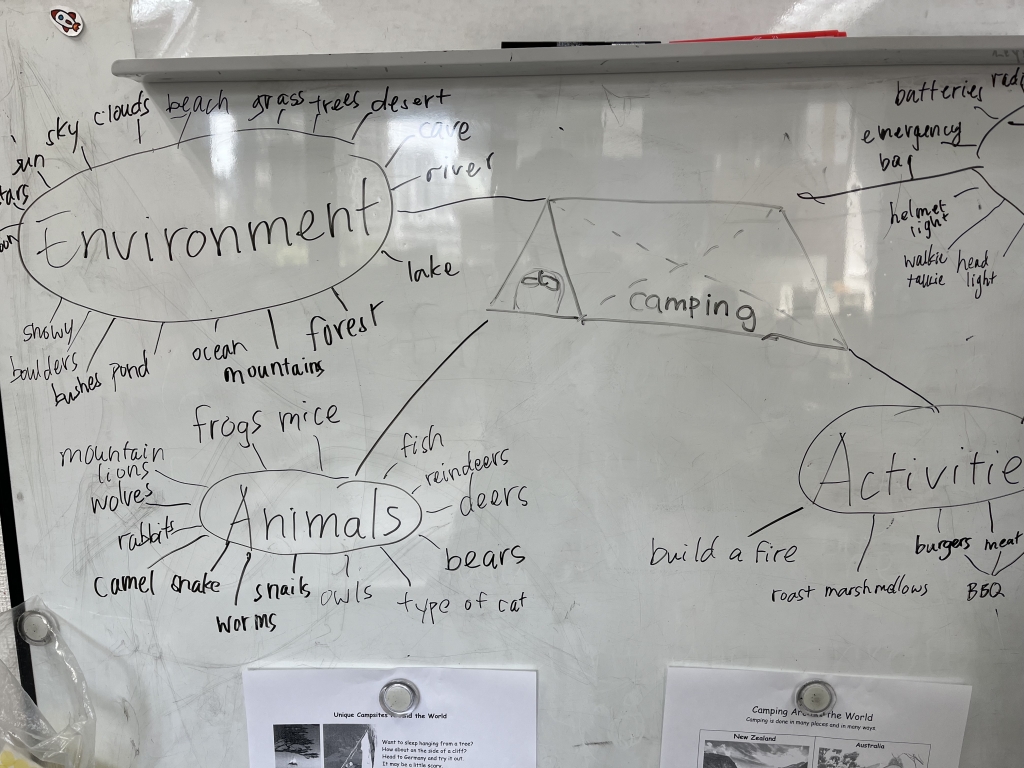 sky
clouds
beach
grass
trees
desert
cave
river
sun
Environment
lake
forest
mountains
ocean
pond
bushes
boulders
camping
batteries
emergency
bag
helmet
light
walkie
talkie
head
light
frogs
mice
mountain
lions
wolves
rabbits
camel
snake
worms
snails
owls
type of cat
bears
deers
reindeers
fish
Animals
Activitie
build a fire
roast marshmallows
burgers
meat
BBQ
Unique Campsites Around the World
Want to sleep hanging from a tree?
How about on the side of a cliff?
Head to Germany and try it out.
It may be a little scary.
Camping Around the World
Camping is done in many places and in many ways.
New Zealand
Australia